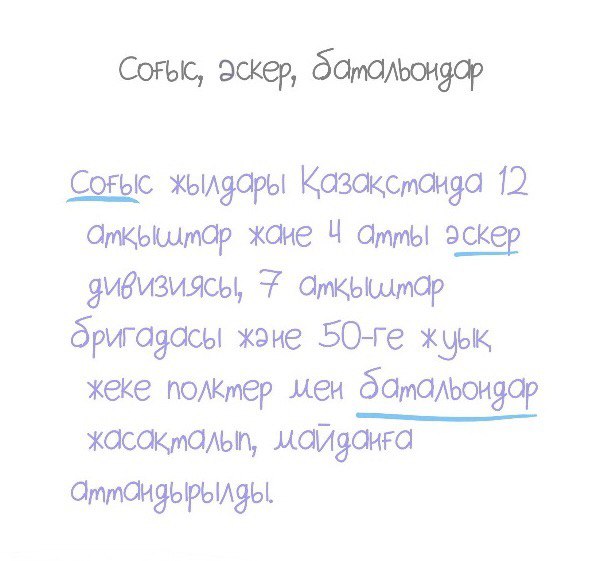 Соғыс, әскер, батальондар
Соғыс жылдары Қазақстанда 12
атқыштар және 4 атты әскер
дивизиясы, 7 атқыштар
бригадасы және 50-ге жуық
жеке полктер мен батальондар
жасақталып, майданға
аттандырылды.